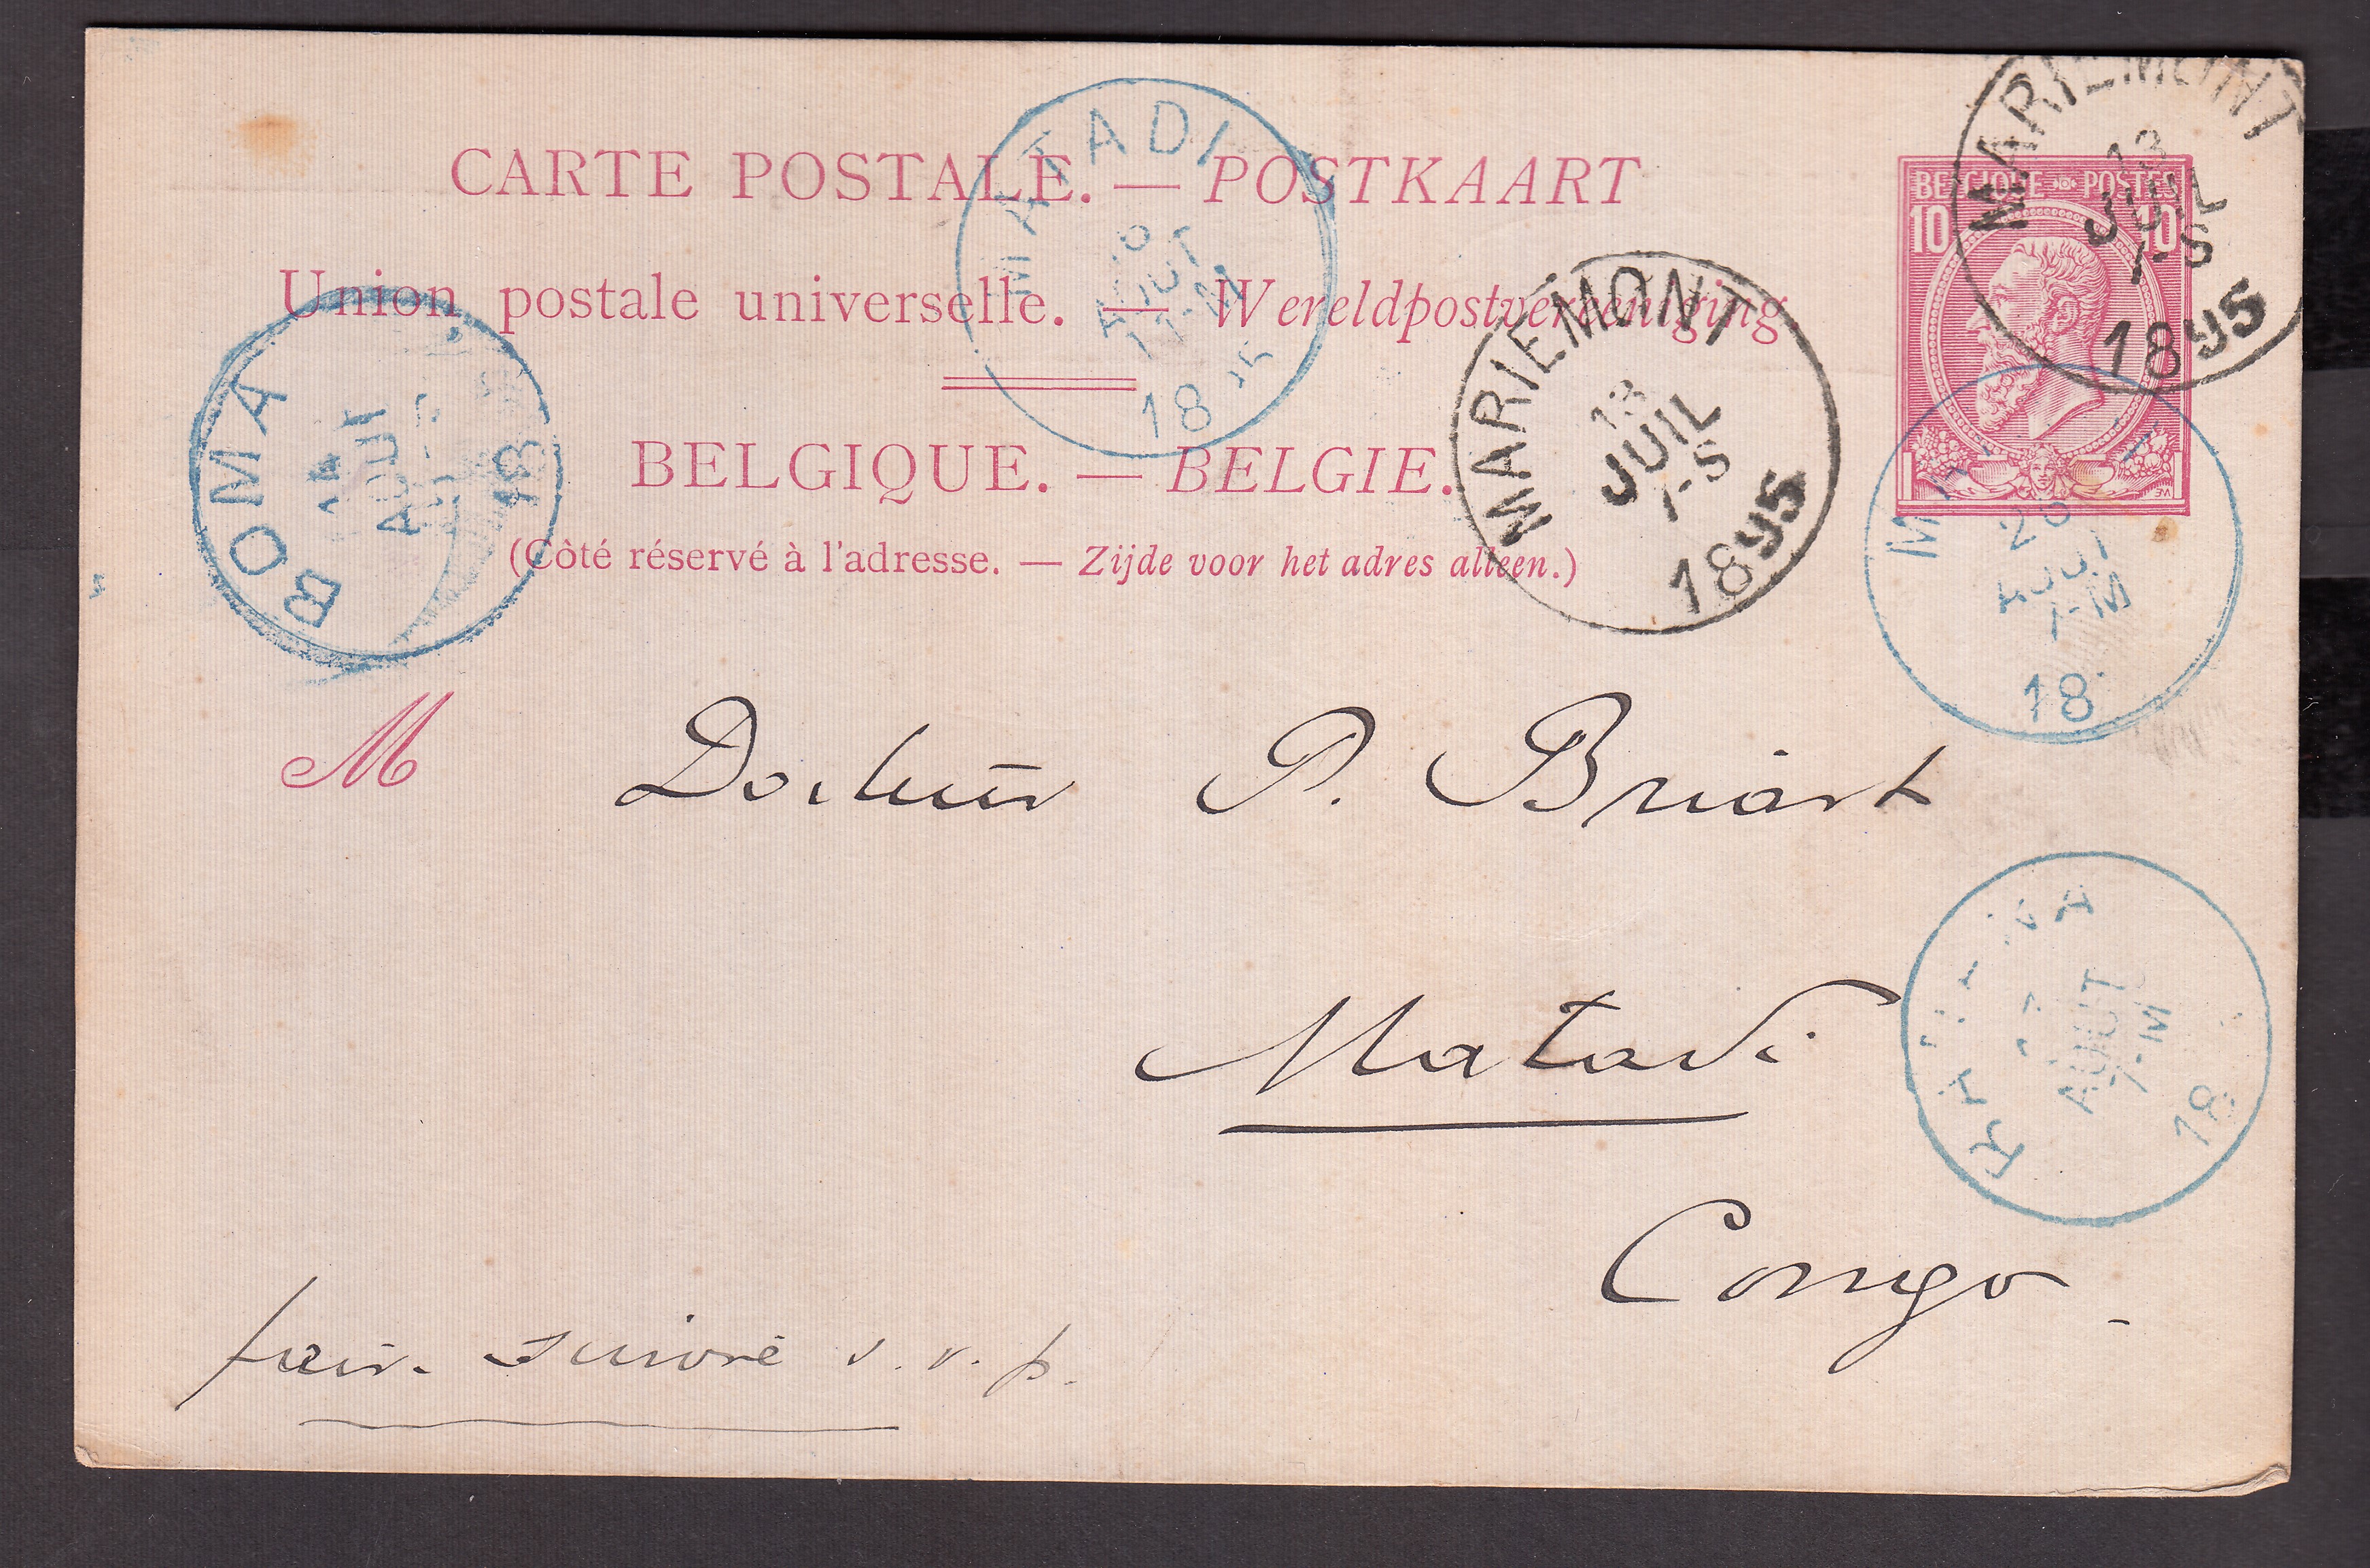 CARTE POSTALE. — POSTKAART
Union postale universelle. — Wereldpostvereeniging
BELGIQUE. — BELGIE.
(Côté réservé à l'adresse. — Zijde voor het adres alleen.)
BELGIQUE POSTES
10 10
MARIEMONT
13
JUIL
7-S
1895
MARIEMONT
13
JUIL
7-S
1895
MATADI
AOUT
18
BOMA
14
AOUT
18
AOUT
7-M
18
AOUT
7-M
18
M Docteur P. Briart
Matadi
Congo.
faire suivre s.v.p.